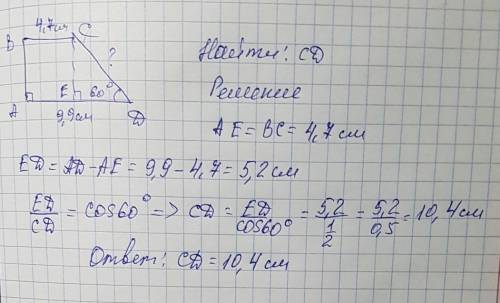 4,7см
B
C
?
Найти: CD
Решение
E 60°
A
D
9,9см
AE = BC = 4,7 см
ED = AD - AE = 9,9 - 4,7 = 5,2 см
ED/CD = cos60° => CD = ED/cos60° = 5,2/(1/2) = 5,2/0,5 = 10,4 см
Ответ: CD = 10,4 см